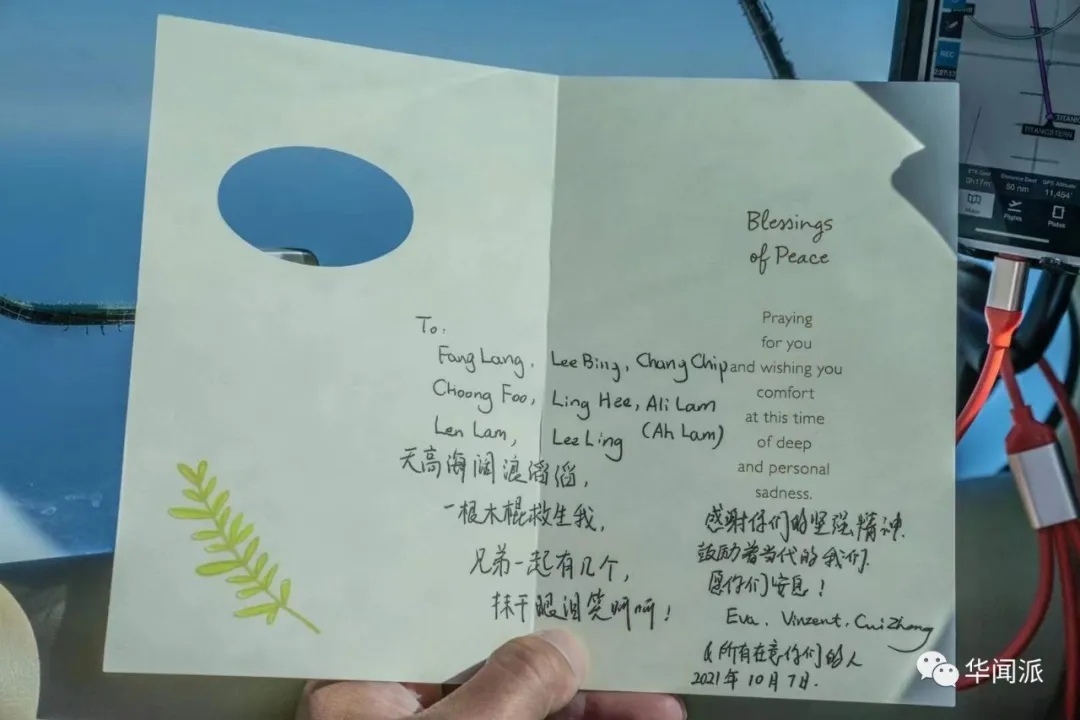 To,
Fang Lang, Lee Bing, Chang Chip
Choong Foo, Ling Hee, Ali Lam
Len Lam, Lee Ling (Ah Lam)
天高海阔浪滔滔,
一根木棍救生我,
兄弟一起有几个,
抹干眼泪笑呵呵!
Blessings
of Peace
Praying
for you
and wishing you
comfort
at this time
of deep
and personal
sadness.
感谢你们的坚强精神.
鼓励着当代的我们.
愿你们安息!
Eva, Vinzent, Cui Zhong
& 所有在意你们的人
2021年10月7日.
REC
TITANIC
Distance Dest
GPS Altitude
50 nm
11,454
Maps
Flights
Plates
华闻派